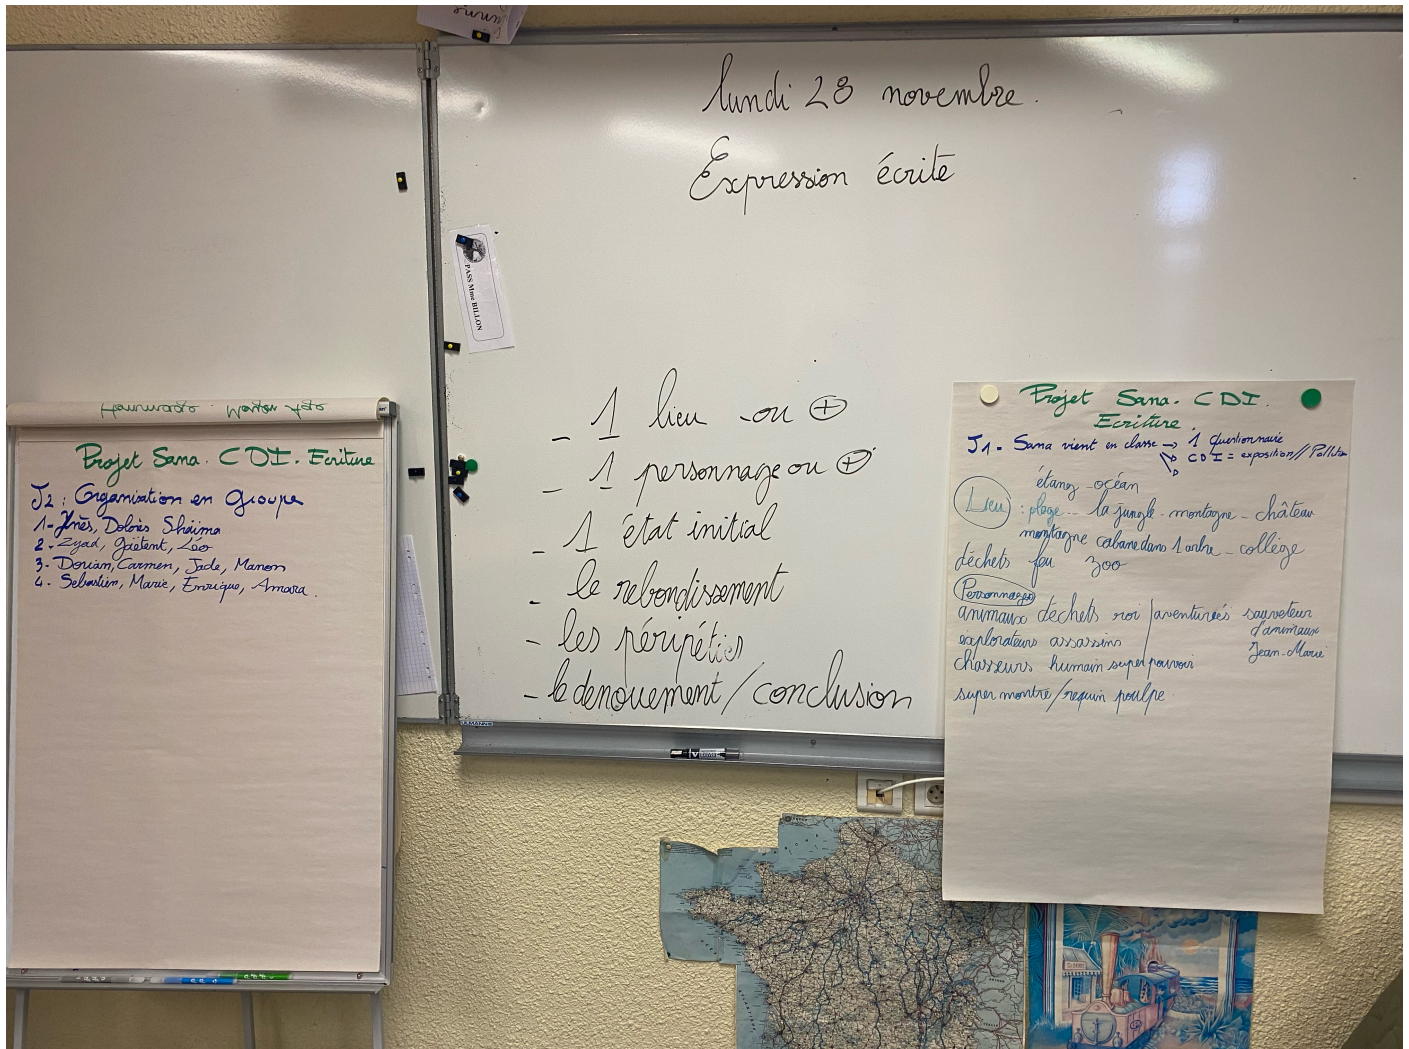 lundi 28 novembre.
Expression écrite
PASS Mme BILLON
- 1 lieu ou ⊕
- 1 personnage ou ⊕
- 1 état initial
- le rebondissement
- les péripéties
- le denouement / conclusion
Projet Sana. CDI. Ecriture
J2 : Organisation en groupe
1- Ynès, Dolorès Shaïma
2- Zyad, gaëtent, Léo
3- Dorian, Carmen, Jade, Manon
4- Sebastien, Marie, Enrique, Amara.
Projet Sana. CDI.
Ecriture.
J1- Sana vient en classe → 1 questionnaire
CDI = exposition // Pollution
étang - océan
Lieu : plage - la jungle - montagne - château
montagne cabane dans 1 arbre - collège
déchets feu zoo
Personnages
animaux déchets roi / aventuriés sauveteur
d'animaux
explorateurs assassins
Jean-Marie
chasseurs humain super pouvoir
super montre / requin poulpe